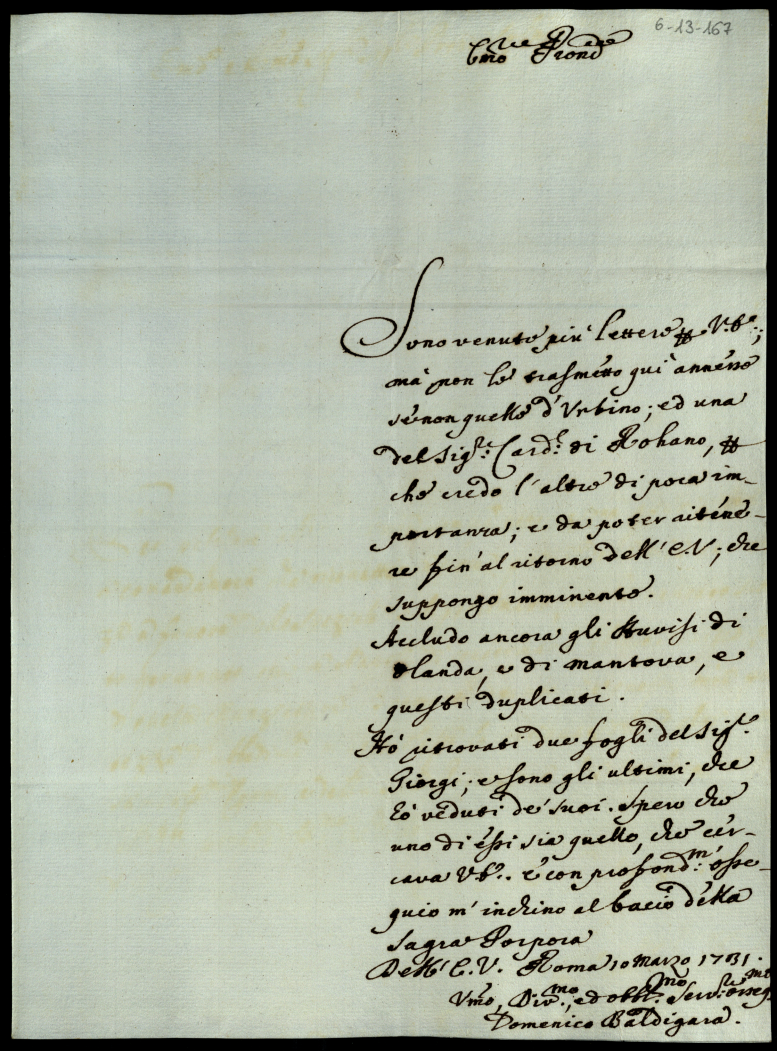 6-13-167
Em̃o e Rev Prone
Sono venute più lettere p V. Em̃;
mà non le trasmetto qui annesse
se non quelle d'Urbino; ed una
del Sig.r Card.l di Rohano, p
che credo l'altre di poca im-
portanza; e da poter ritene-
re fin' al ritorno dell' E.V; che
suppongo imminente.
Accludo ancora gli Auvisi di
Olanda, e di Mantova, e
questi duplicati.
Hò ritrovati due fogli del Sig.r
Giorgi; e sono gli ultimi, che
hò veduti de' suoi. Spero che
uno di essi sia quello, che cer-
cava V. Em̃. e con profond.m osse-
quio m' inchino al bacio della
Sagra Porpora
Dell' E.V. Roma 10 Marzo 1731.
Um̃o, Div.mo, ed obbl.mo Serv.re osseq.mo
Domenico Baldigara.